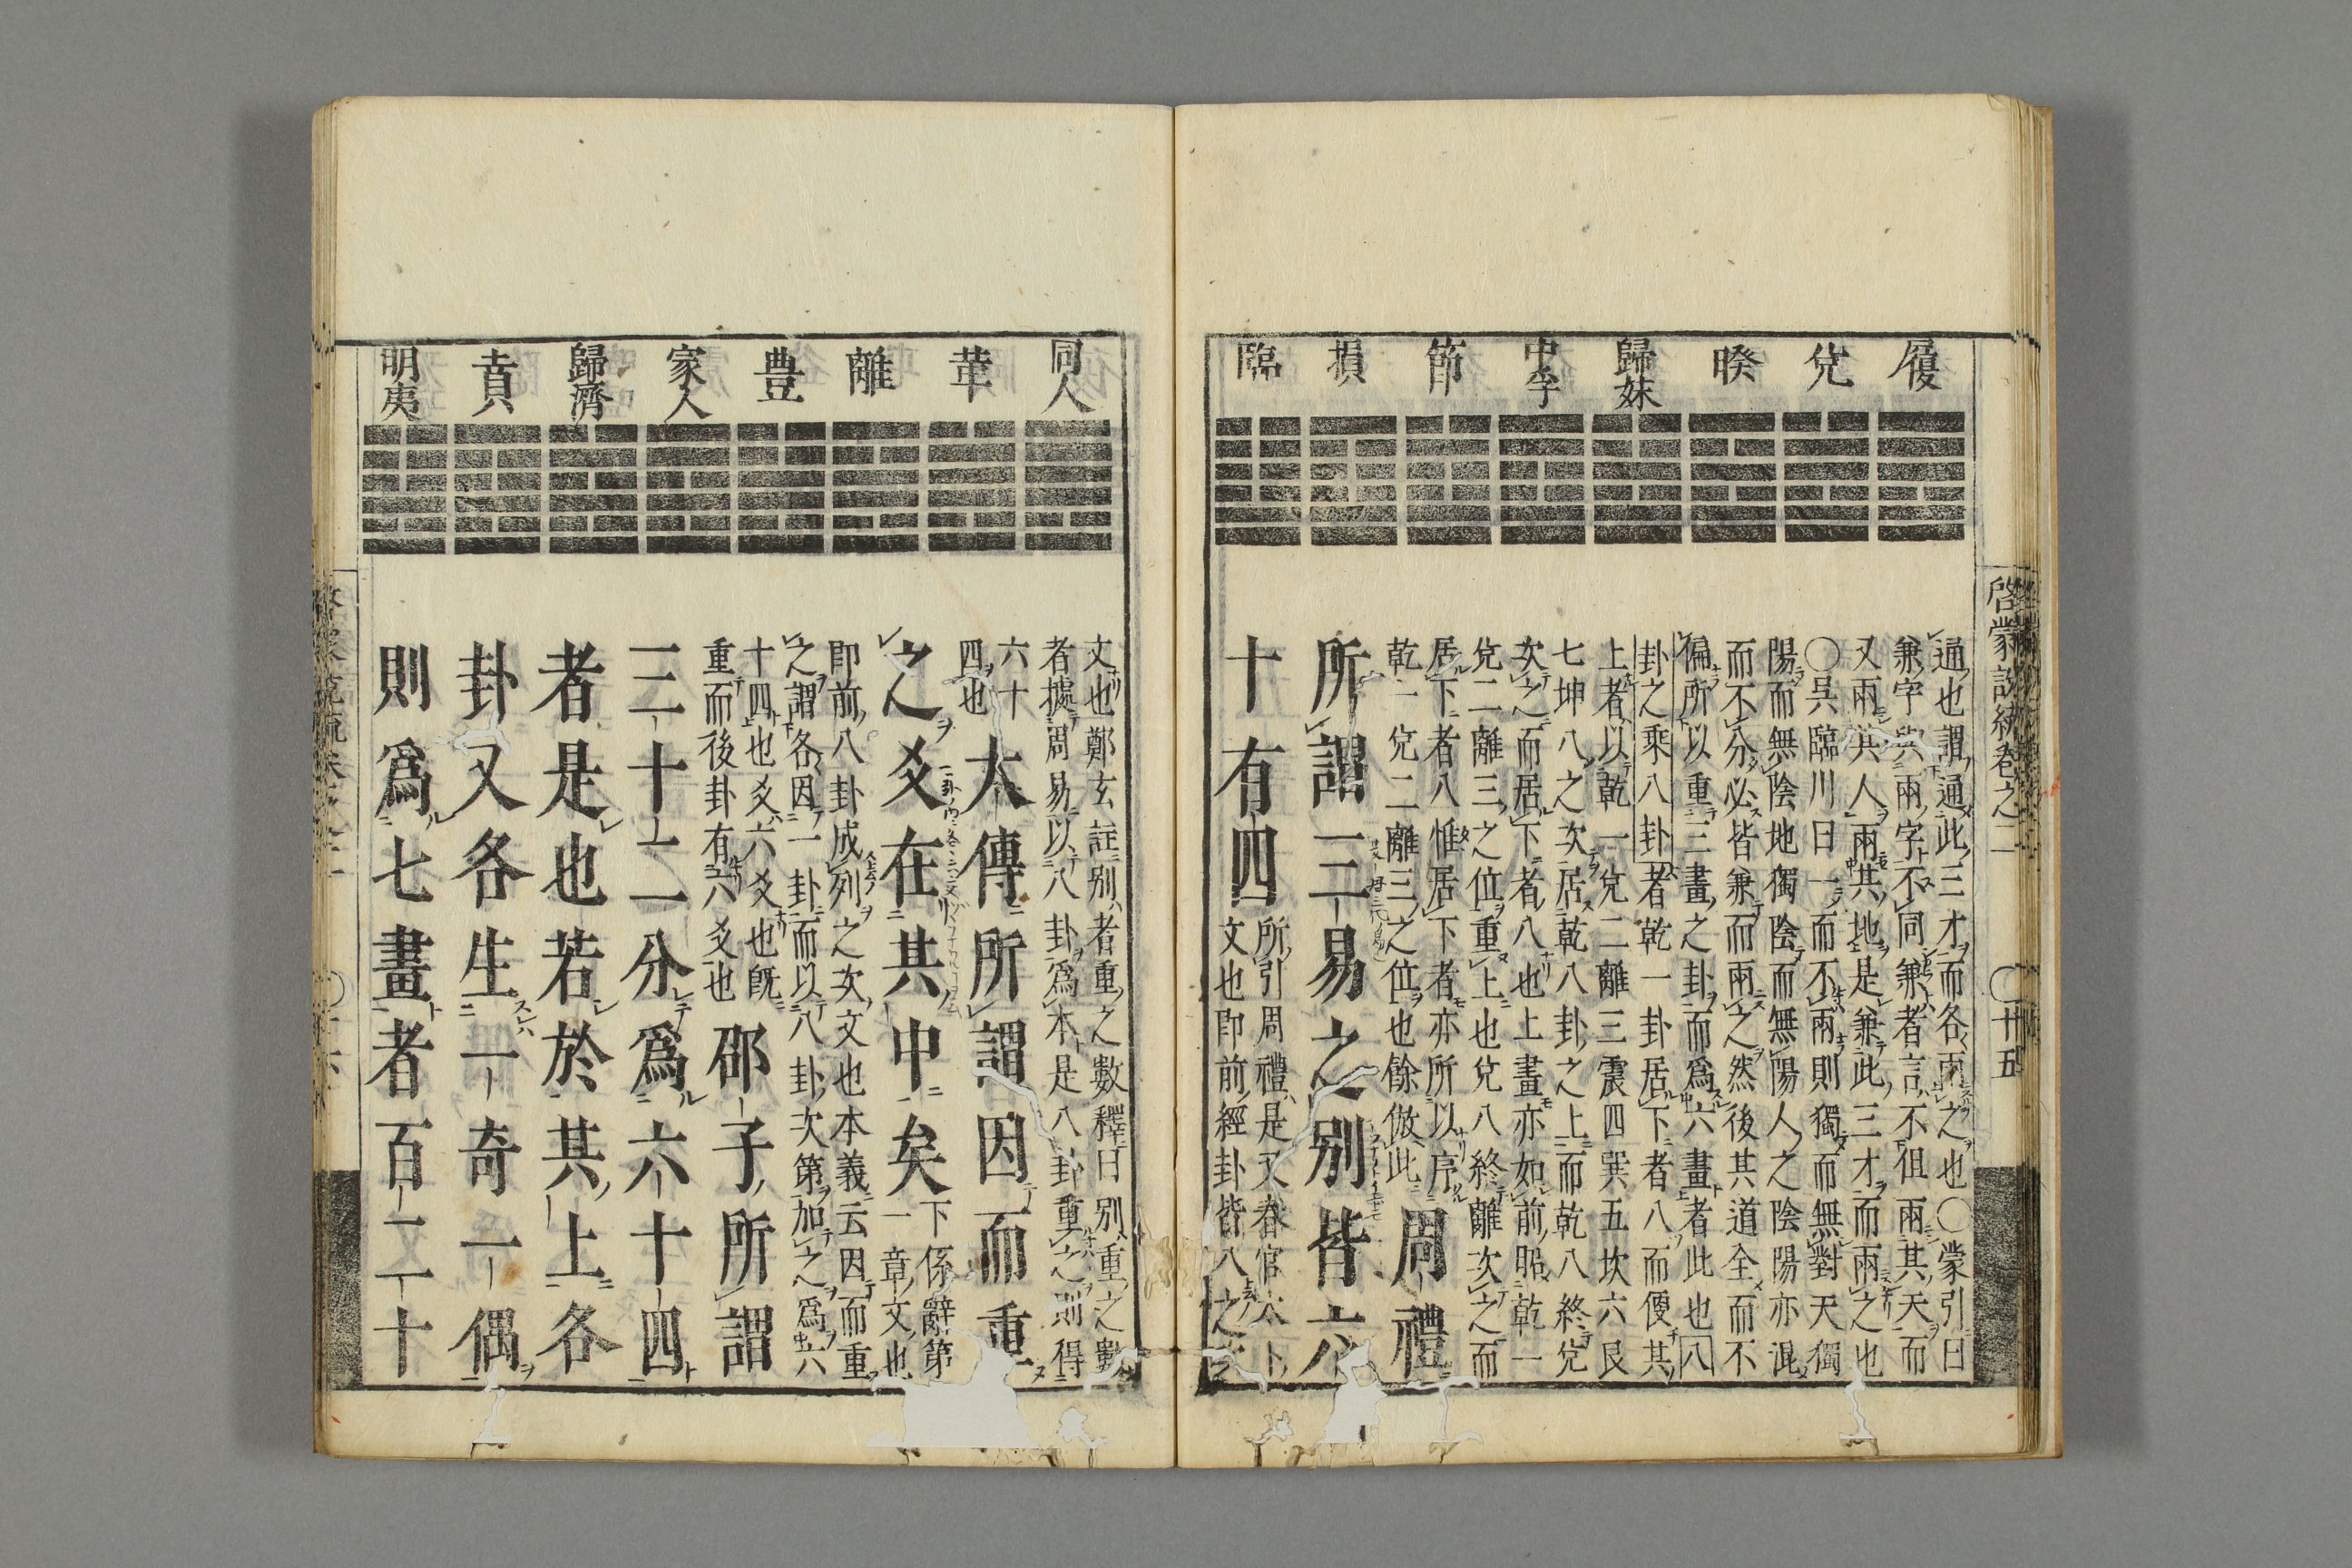 履
兌
睽
歸妹
中孚
節
損
臨
通也謂通此三才而各兩之也〇蒙引曰
兼字與兩字不同兼者言不徂兩其天而
又兩其人兩其地是兼此三才而兩之也
〇吳臨川曰一而不兩則獨而無對天獨
陽而無陰地獨陰而無陽人之陰陽亦混
而不分必皆兼而兩之然後其道全而不
偏所以重三畫之卦而為六畫者此也八
卦之乘八卦者乾一卦居下者八而便其
上者以乾一兌二離三震四巽五坎六艮
七坤八之次居乾八卦之上而乾八終兌
次之而居下者八也上畫亦如前昭乾一
兌二離三之位重上也兌八終離次之而
居下者八惟居下者亦所以序
乾一兌二離三之位也餘倣此
周禮
所謂三易之別皆六
十有四
所引周禮是又春官太卜
文也即前經卦皆八之
啓蒙說統卷之二
〇廿五
同人
革
離
豊
家人
歸濟
賁
明夷
文也鄭玄註別者重之數釋曰別重之數
者據周易以八卦為本是八卦重之則得
六十
四也
太傳所謂因而重
之爻在其中矣
下係辭第
一章文也
即前八卦成列之次文也本義云因而重
之謂各因一卦而以八卦次第加之為六
十四也爻六爻也既
重而後卦有六爻也
邵子所謂
三十二分為六十四
者是也若於其上各
卦又各生一奇一偶
則為七畫者百二十